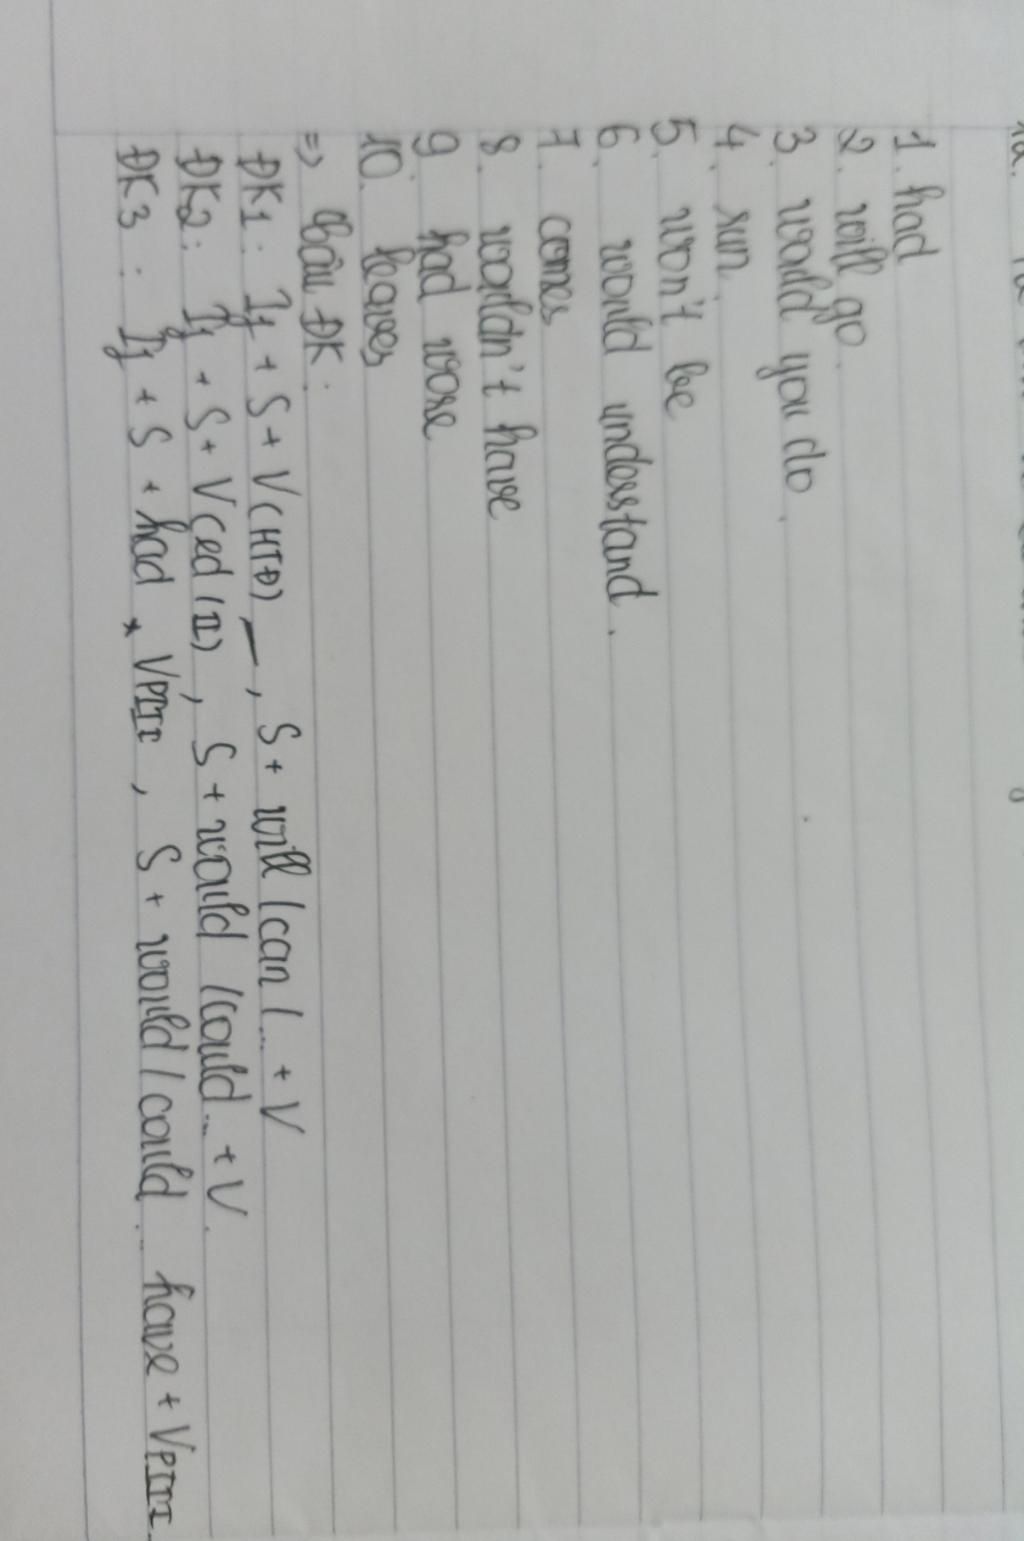 1. had
2. will go.
3. would you do.
4. run.
5. won't be
6. would understand.
7. comes
8. wouldn't have
9. had wore
10. leaves
=> Câu ĐK:
ĐK1: If + S + V(HTĐ), S + will / can /... + V
ĐK2: If + S + V(ed/II), S + would / could... + V.
ĐK3: If + S + had + VPIII, S + would / could... have + VPIII.